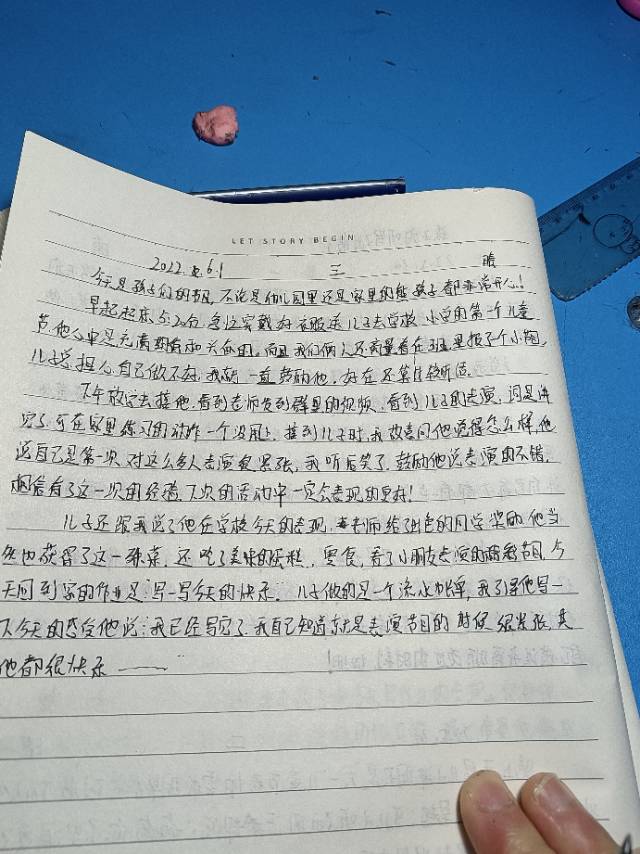 LET STORY BEGIN
2022.6.1 三 晴
今天是孩子们的节日,不论是幼儿园里还是家里的熊孩子都非常开心!
早起起床 急忙穿戴好衣服送儿子去学校,小学的第一个儿童
节,他心中是充满期待和兴奋的,而且我们俩人还商量着在班里报了个小相声,
儿子总担心自己做不好,我就一直鼓励他,好在还算
下午放学去接他,看到老师发到群里的视频,看到儿子的表演,词是背
完了,可在家里练习的动作一个没用上,接到儿子时,我故意问他觉得怎么样,他
说自己是第一次对这么多人表演很紧张,我听后笑了,鼓励他说表演的不错,
相信有了这一次的经验,下次的活动中一定会表现的更好!
儿子还跟我说了他在学校今天的表现,老师给了出色的同学奖励,他当
然也获得了这一殊荣,还吃了美味的蛋糕,零食,看了小朋友表演的精彩节目,今
天回到家的作业是:写一写今天的快乐,儿子做的是一个流水账单,我引导他写一
下今天的感受,他说:我已经写完了,我自己知道就是表演节目的时候很紧张,其
他都很快乐——!